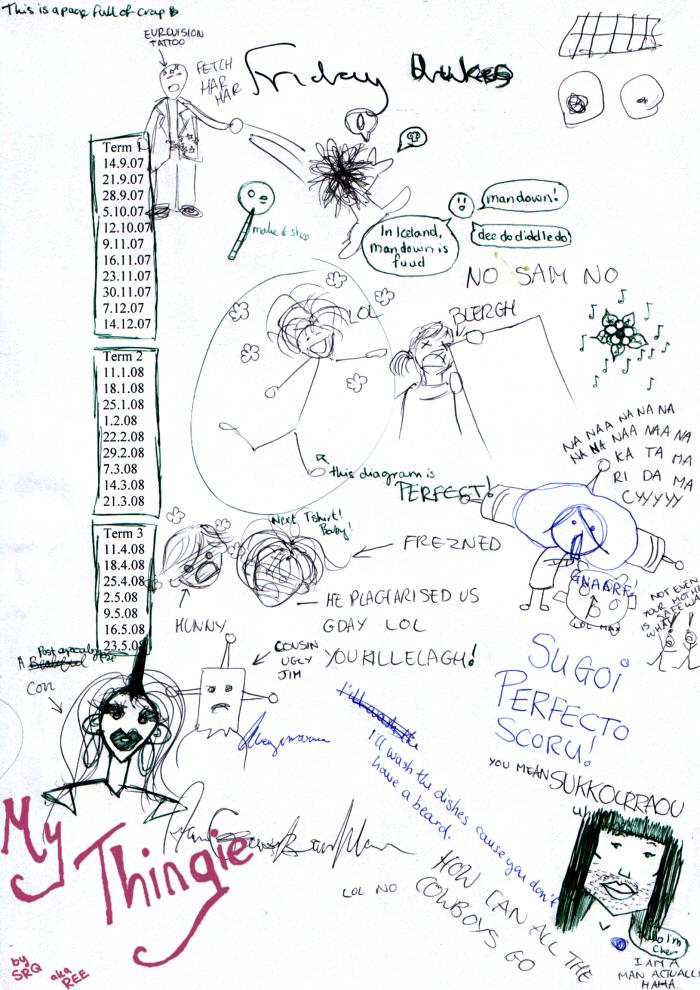 This is a page full of crap
EUROVISION
TATTOO
FETCH
HAR
HAR
Friday
Term 1
14.9.07
21.9.07
28.9.07
5.10.07
12.10.07
9.11.07
16.11.07
23.11.07
30.11.07
7.12.07
14.12.07
make it stop
mandown!
dee do diddle do
In Iceland,
mandown is
fuud
NO SAM NO
LOL
BLERGH
Term 2
11.1.08
18.1.08
25.1.08
1.2.08
22.2.08
29.2.08
7.3.08
14.3.08
21.3.08
this diagram is
PERFECT!
NA NAA NA NA NA
NA NA NAA NAA NA
KA TA MA
RI DA MA
CYYYYY
Term 3
11.4.08
18.4.08
25.4.08
2.5.08
9.5.08
16.5.08
23.5.08
Next Tshirt!
Baby!
FREZNED
HUNNY
HE PLAGIARISED US
GDAY LOL
YOUKILLECAGH!
GNAARF!
LOL MAX
NOT EVEN
YOUR MOTHER
IS SAFE
WHAT
Post apocalypse
A
Con
COUSIN
UGLY
JIM
SUGOI
PERFECTO
SCORU!
YOU MEAN SUKKOURRAOU
I'll wash the
I'll wash the dishes cause you don't
have a beard.
My
Thingie
LOL NO
HOW CAN ALL THE
COWBOYS GO
Hello I'm
Cher
I AM A
MAN ACTUALLY
HAHA
by
SRQ
aka
REE